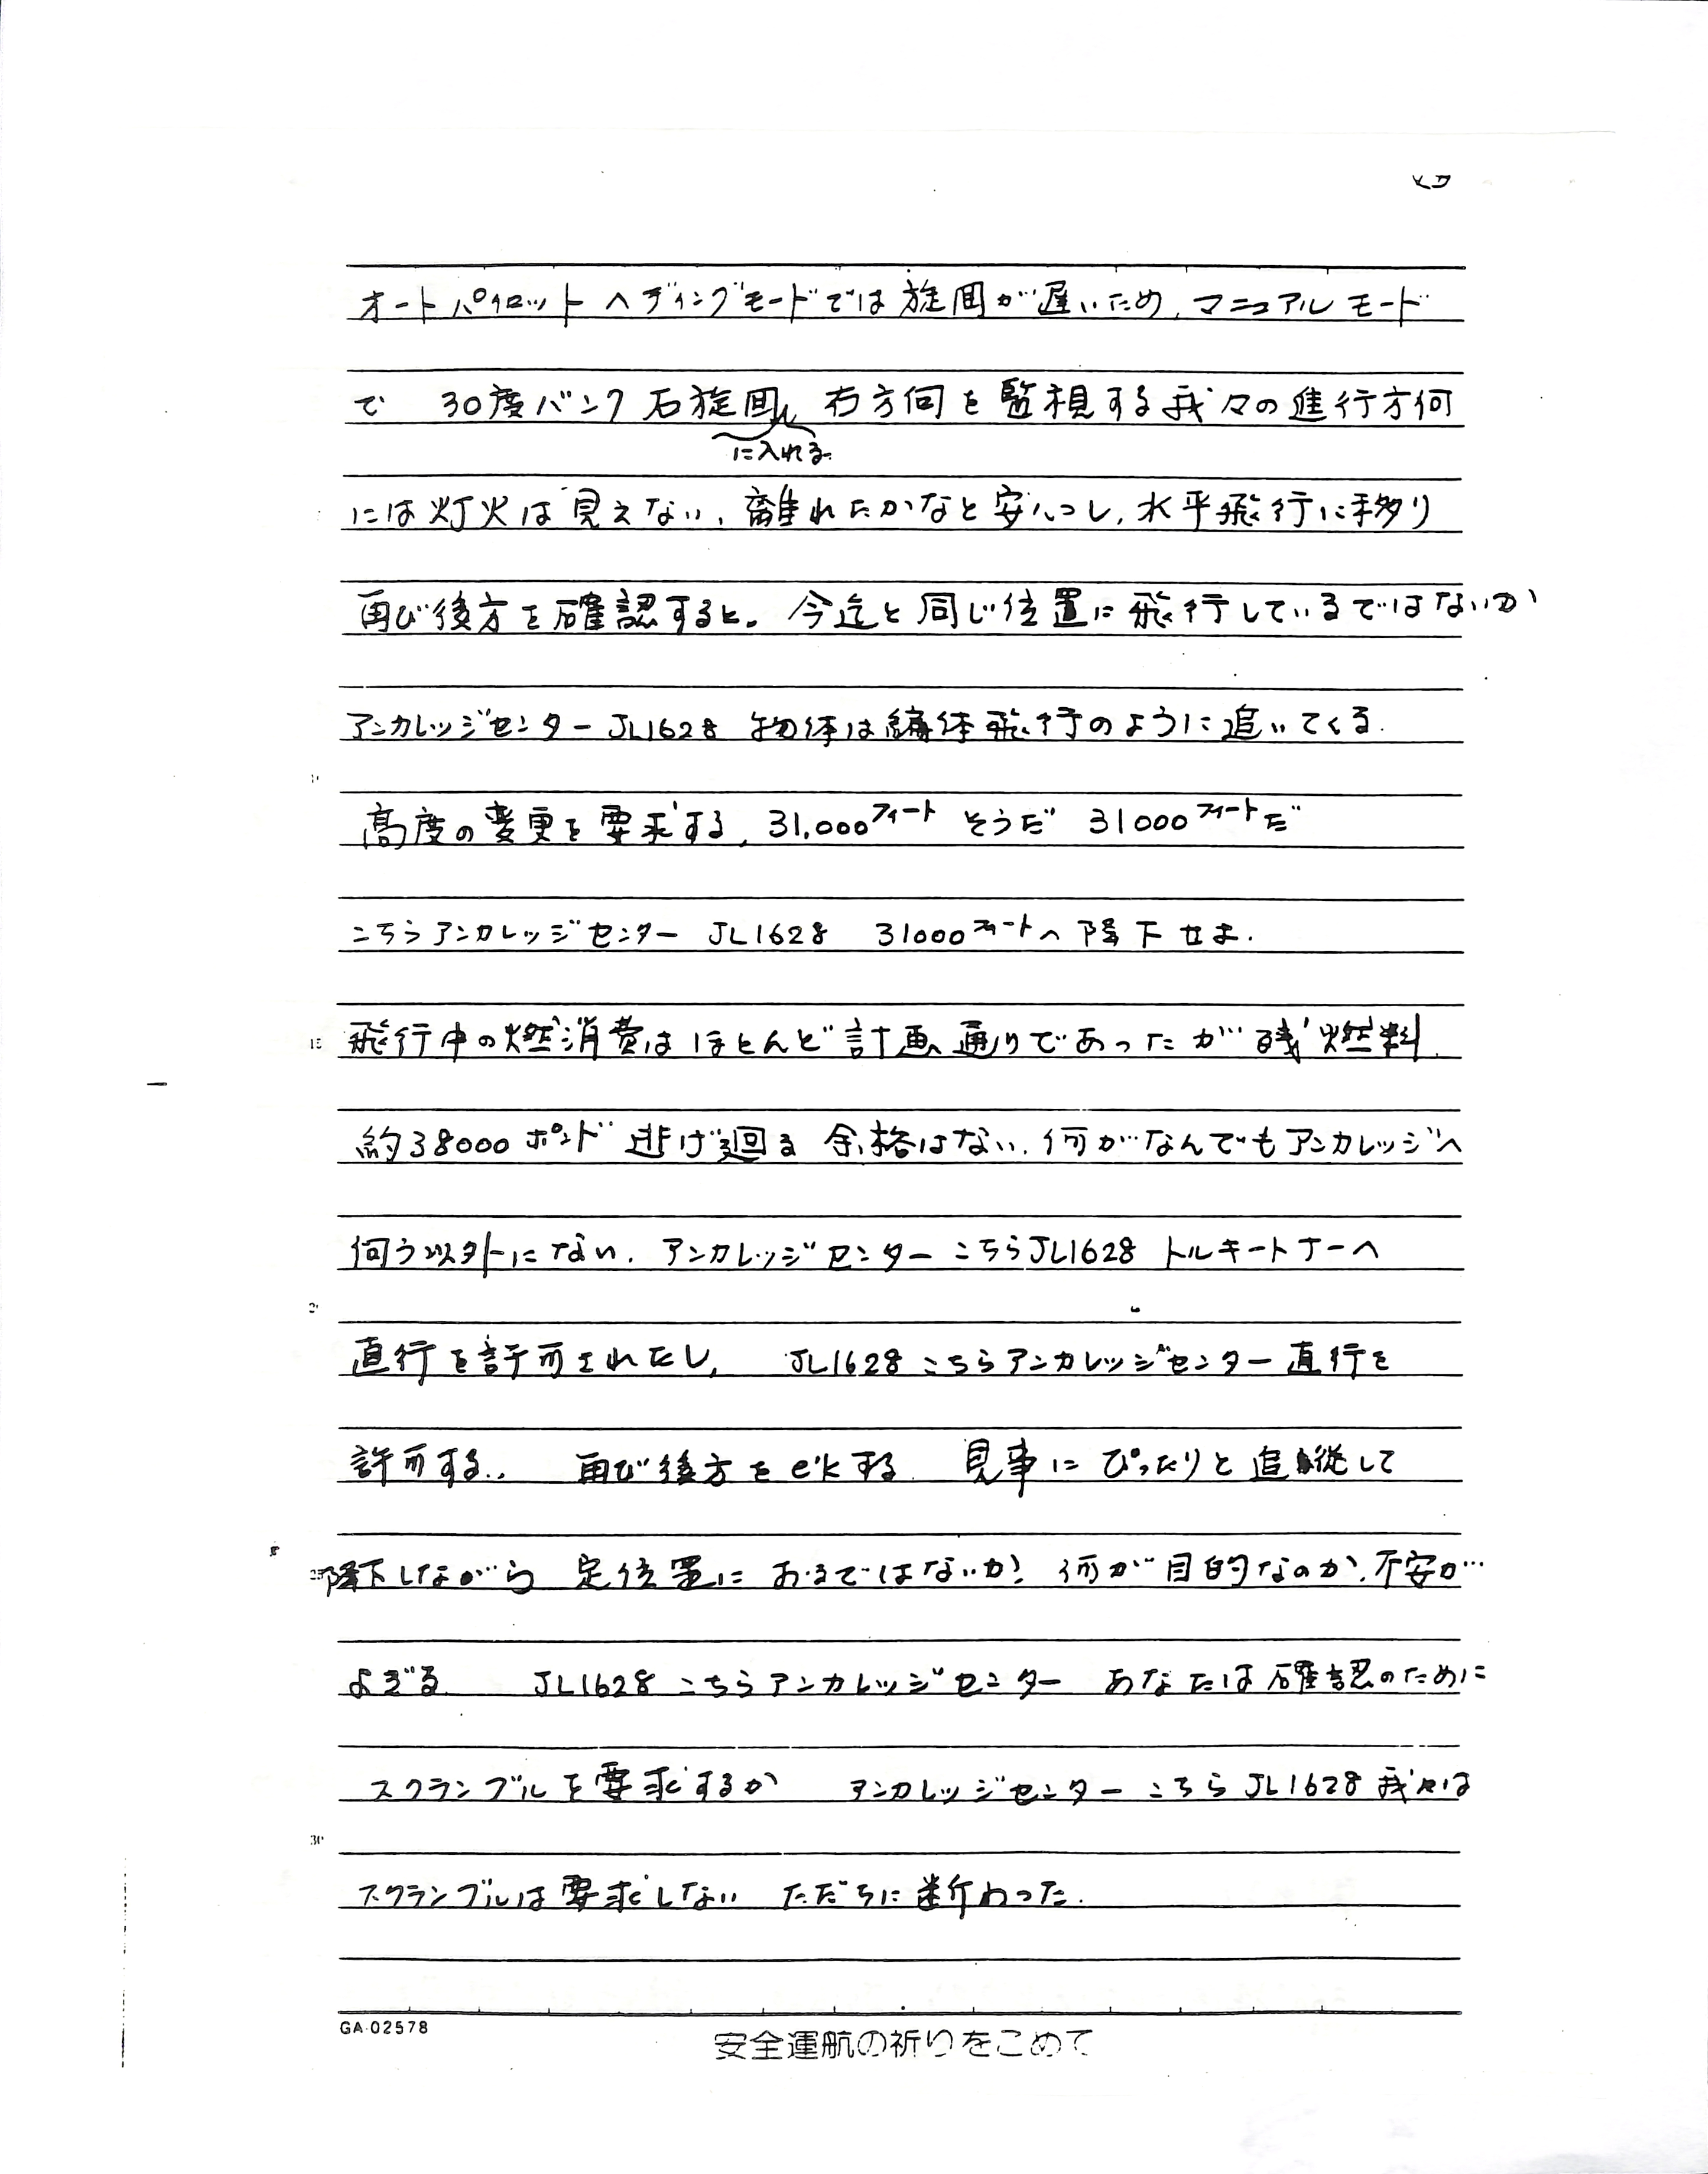 オートパイロットヘディングモードでは旋回が遅いため、マニュアルモード
で 30度バンク右旋回し 右方向を監視する我々の進行方向
に入れる
には灯火は見えない、離れたかなと安心し、水平飛行に移り
再び後方を確認すると。今迄と同じ位置に飛行しているではないか
アンカレッジセンター JL1628 物体は編体飛行のように追いてくる.
高度の変更を要求する、31,000フィート そうだ 31000フィートだ
こちらアンカレッジセンター JL1628 31000フィートへ降下せよ.
15 飛行中の燃消費はほとんど計画通りであったが残燃料
約38000ポンド 逃げ廻る余裕はない. 何がなんでもアンカレッジへ
向う以外にない. アンカレッジセンターこちらJL1628 トルキートナーへ
直行を許可されたし、 JL1628こちらアンカレッジセンター直行を
許可する.. 再び後方をc'kする 見事にぴったりと追従して
降下しながら 定位置におるではないか! 何が目的なのか、不安が…
よぎる JL1628こちらアンカレッジセンター あなたは確認のために
スクランブルを要求するか アンカレッジセンターこちらJL1628 我々は
30
スクランブルは要求しない ただちに断わった.
GA-02578
安全運航の祈りをこめて